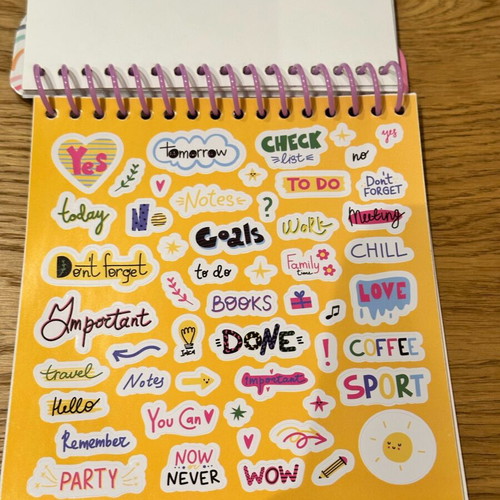 Yes
tomorrow
CHECK
list
no
yes
Notes
TO DO
Don't
FORGET
today
No
?
Work
Meeting
Goals
Don't forget
to do
Family
time
CHILL
BOOKS
LOVE
Important
IDEA
DONE
!
COFFEE
travel
Notes
important
SPORT
Hello
You Can
Remember
PARTY
NOW
OR
NEVER
WOW